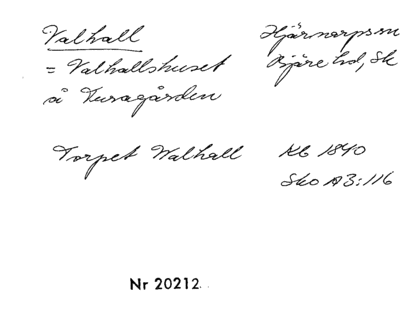 Valhall
Hjärnarps sn
= Valhallshuset
Bjäre hd, Sk
å Turagården
Torpet Walhall
Kb 1840
Sko A3:116
Nr 20212